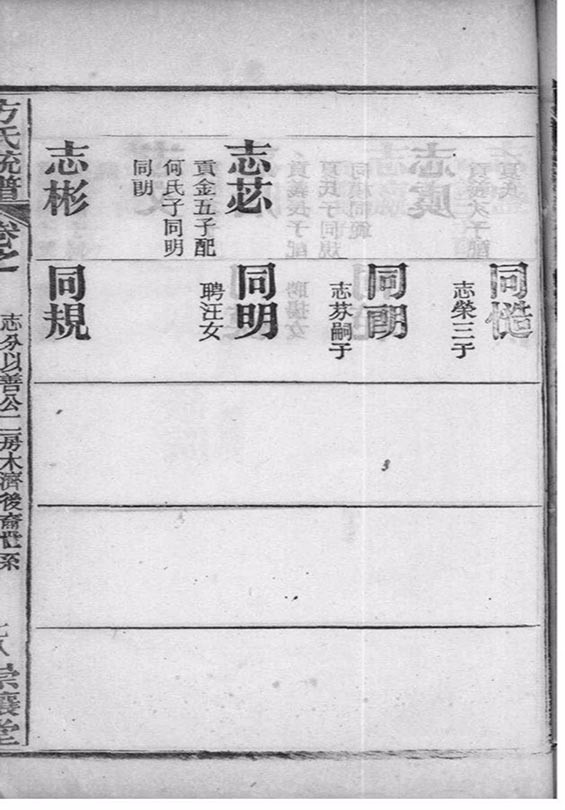 志苾
貢金五子配
何氏子同明
同朙
志彬
同
志榮三子
同朙
志芬嗣子
同明
聘汪女
同規
方氏統譜
卷之
志分以善公二房木濟後裔世系